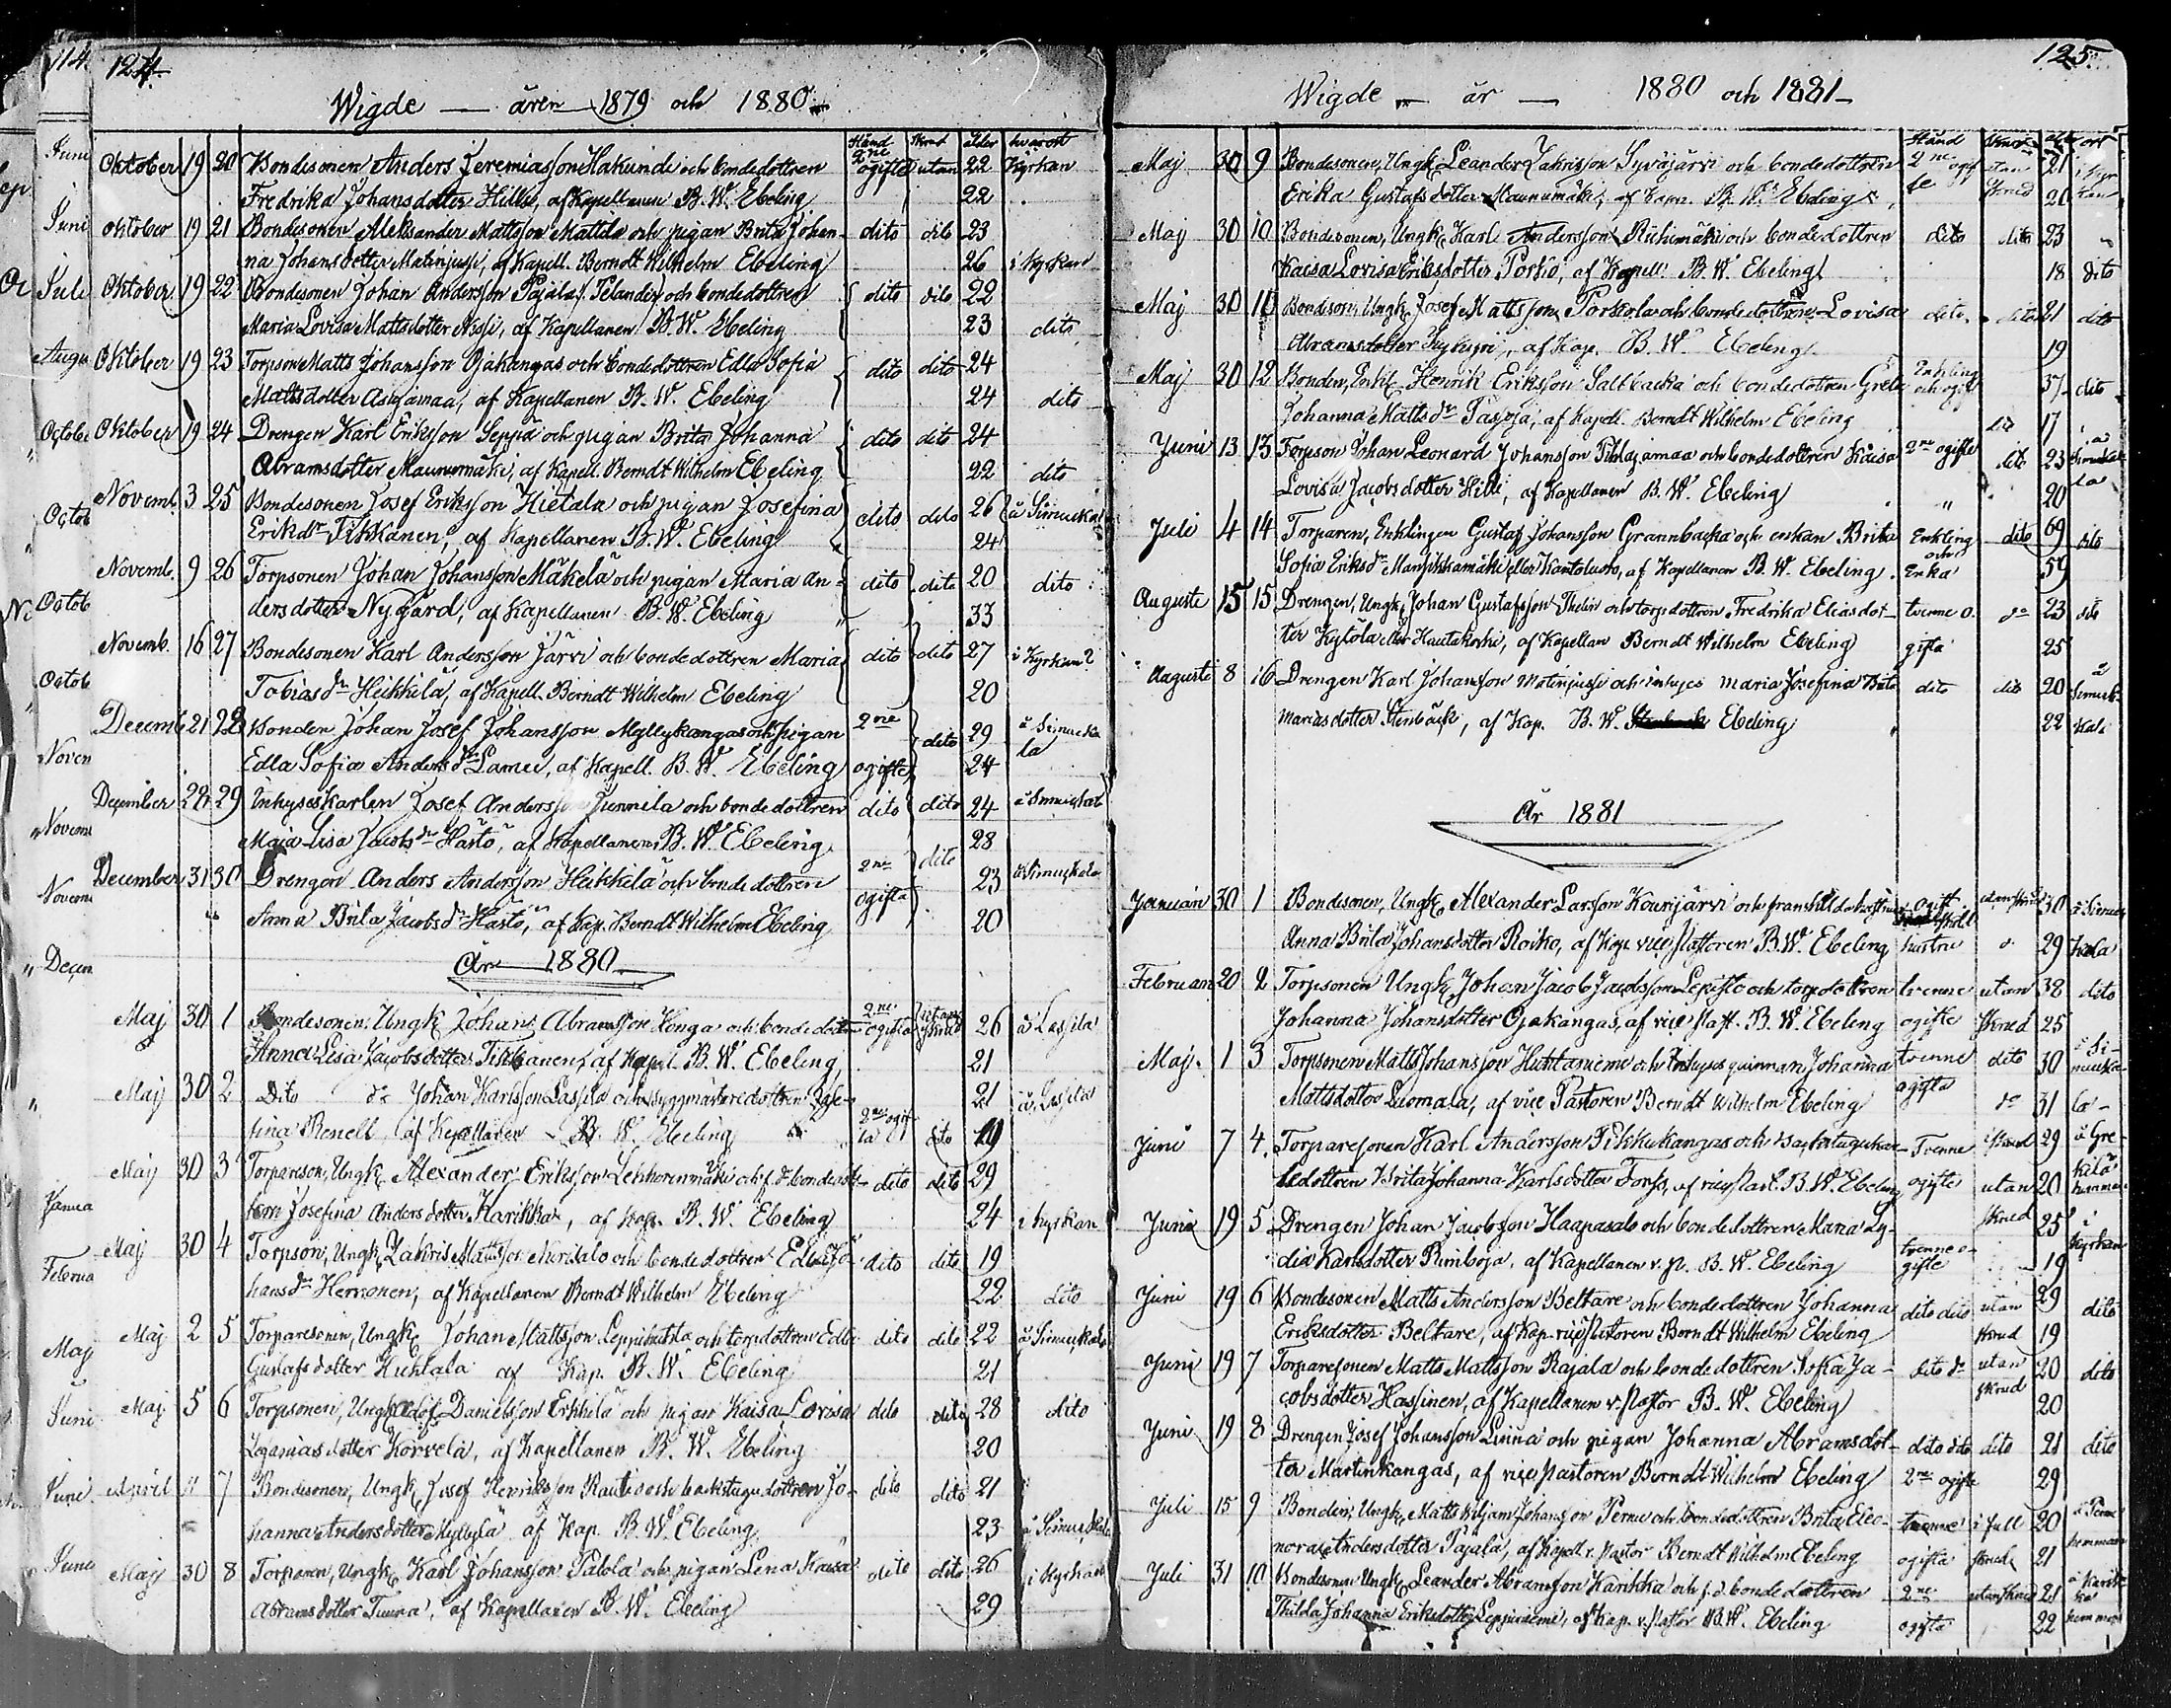 124.
Wigde — åren 1879 och 1880
Stånd Skrud ålder hvarest
Oktober 19 20 Bondesonen Anders Jeremiasson Hakunde och bondedottren 2ne ogifte utan 22 Kyrkan
Fredrika Johansdotter Hilli, af Kapellanen B. W. Ebeling 22
Oktober 19 21 Bondesonen Aleksander Mattsson Mattila och pigan Brita Johan- dito dito 23
na Johansdotter Matinjussi, af Kapell. Berndt Wilhelm Ebeling 26 i Kyrkan
Oktober 19 22 Bondesonen Johan Andersson Pajala f. Telander och bondedottren dito dito 22
Maria Lovisa Mattsdotter Nissi, af Kapellanen B. W. Ebeling 23 dito
Oktober 19 23 Torpson Matts Johansson Ojakangas och bondedottren Edla Sofia dito dito 24
Mattsdotter Asujamaa, af Kapellanen B. W. Ebeling 24 dito
Oktober 19 24 Drengen Karl Eriksson Seppä och pigan Brita Johanna dito dito 24
Abramsdotter Maunumäki, af Kapell. Berndt Wilhelm Ebeling 22 dito
Novemb. 3 25 Bondesonen Josef Eriksson Hietala och pigan Josefina dito dito 26 å Simuckala
Eriksdr Tikkanen, af Kapellanen B. W. Ebeling 24
Novemb. 9 26 Torpsonen Johan Johansson Mäkelä och pigan Maria An- dito dito 20 dito
dersdotter Nygård, af Kapellanen B. W. Ebeling 33
Novemb. 16 27 Bondesonen Karl Andersson Järvi och bondedottren Maria dito dito 27 i Kyrkan?
Tobiasdr Heikkilä, af Kapell. Berndt Wilhelm Ebeling 20
Decemb 21 28 Bonden Johan Josef Johansson Myllykangas och pigan 2ne dito 29 å Simucka
Edla Sofia Andersdr Lamu, af Kapell. B. W. Ebeling ogifte 24 la
December 22 29 Inhyseskarlen Josef Andersson Junnila och bondedottren dito dito 24
Maja Lisa Jacobsdr Hästö, af Kapellanen B. W. Ebeling 28
December 31 30 Drengen Anders Andersson Heikkilä och bondedottren 2ne dito 23 å Simuckala
Anna Brita Jacobsdr Hästö, af Kap. Berndt Wilhelm Ebeling ogifta 20
År 1880
Maj 30 1 Bondesonen, Ungk. Johan Abramsson Konga och bondedottren 2ne ogifta utan skrud 26 å Lassila
Anna Lisa Jacobsdotter Tikkanen, af Kapel. B. W. Ebeling 21
Maj 30 2 Dito dr Johan Karlsson Lassila och byggmästaredottren Jose- 21 å Lassila
fina Renell, af Kapellanen B. W. Ebeling 2ne ogifta dito 19
Maj 30 3 Torpareson, Ungk. Alexander Eriksson Lehkorenmäki och f. d. bondedot- dito dito 29
tern Josefina Andersdotter Karikka, af Kap. B. W. Ebeling 24 i kyrkan
Maj 30 4 Torpson, Ungk. Zakris Mattsson Niri dito dito 19
hansdr Herronen, af Kapellanen Berndt Wilhelm Ebeling 22 dito
Maj 2 5 Torparesonen, Ungk. Johan Mattsson och torpdottren Edla dito dito 22 å Simuckala
Gustafsdotter Huhtala af Kap. B. W. Ebeling 21
Maj 5 6 Torpsonen, Ungk. Adolf Danielsson Erkkilä och pigan Kaisa Lovisa dito dito 28 dito
dotter Körvelä, af Kapellanen B. W. Ebeling 20
April 11 7 Bondesonen, Ungk. Josef Henriksson Rautio och backstugudottren Jo- dito dito 21
hanna Andersdotter Myllylä af Kap. B. W. Ebeling 23 å Simuckala
Maj 30 8 Torparen, Ungk. Karl Johansson Palola och pigan Lena Kaisa dito dito 26 i Kyrkan
Abramsdotter Tuura, af Kapellanen B. W. Ebeling 29
125.
Wigde — år — 1880 och 1881
Stånd Skrud ålder ort
Maj 30 9 Bondesonen, Ungk. Leander Zakrisson Syväjärvi och bondedottren 2ne ogif utan 21 i Kyr
Erika Gustafsdotter Maunumäki, af Kapn. B. W. Ebeling te skrud 20 kan
Maj 30 10 Bondesonen, Ungk. Karl Andersson Riihimäki och bondedottren dito dito 23
Kaisa Lovisa Eriksdotter Portio, af Kapell. B. W. Ebeling 18 dito
Maj 30 11 Bondeson, Ungk. Josef Mattsson Torkola och bondedottren Lovisa dito dito 21 dito
Abramsdotter, af Kap. B. W. Ebeling 19
Maj 30 12 Bonden, Enkl. Henrik Eriksson Saltbacka och bondedottren Greta Enkling och ogift 37 dito
Johanna Mattsdr, af Kapell. Berndt Wilhelm Ebeling 17
Juni 13 13 Torpson Johan Leonard Johansson och bondedottren Kaisa 2ne ogifte dito 23 å Simucka
Lovisa Jacobsdotter Hilli, af Kapellanen B. W. Ebeling 20 la
Juli 4 14 Torparen, Enklingen Gustaf Johansson Grannbacka och enkan Brita Enkling dito 69 dito
Sofia Eriksdr Mansikkamäki eller Kantoluoto, af Kapellanen B. W. Ebeling. och Enka 59
Augusti 15 15 Drengen, Ungk. Johan Gustafsson Thelin och torpdottren Fredrika Eliasdot- tvenne o- do 23 dito
ter Kytölä eller Hautakoski, af Kapellan Berndt Wilhelm Ebeling gifta 25
Augusti 8 16 Drengen Karl Johansson Matinjussi och inhyses Maria Josefina Brita dito dito 20 å Simuk-
Mariasdotter Stenbäck, af Kap. B. W. Ebeling 22 kala
År 1881
Januari 30 1 Bondesonen, Ungk. Alexander Larsson Kounjärvi och franskilda hustrun ogift utan skrud 30 å Simuc
Anna Brita Johansdotter Roiko, af Kap. vice pastoren B. W. Ebeling hustru 29 kala
Februari 20 2 Torpsonen Ungk. Johan Jacob Jacobsson Lepistö och torpdottren tvenne utan 38 dito
Johanna Johansdotter Ojakangas, af vice past. B. W. Ebeling ogifte skrud 25
Maj 1 3 Torpsonen Matts Johansson Huhtaniemi och Inhyses quinnan Johanna tvenne dito 30 å Si-
Mattsdotter Luomala, af vice Pastoren Berndt Wilhelm Ebeling ogifta do 31 muckala
Juni 7 4. Torparesonen Karl Andersson Pikkukangas och backstugukar- Tvenne 29
ledottren Brita Johanna Karlsdotter Forss, af vice Past. B. W. Ebeling ogifte utan 20
Juni 19 5 Drengen Johan Jacobsson Haapasalo och bondedottren Maria Ly- skrud 25 i Kyrkan
dia Karlsdotter Rimboja, af Kapellanen v. p. B. W. Ebeling tvenne o-gifte 19
Juni 19 6 Bondesonen Matts Andersson Beltare och bondedottren Johanna dito dito utan 29 dito
Eriksdotter Beltare, af Kap. vice Pastoren Berndt Wilhelm Ebeling skrud 19
Juni 19 7 Torparesonen Matts Mattsson Rajala och bondedottren Sofia Ja- dito do utan 20 dito
cobsdotter Hassinen, af Kapellanen v. Pastor B. W. Ebeling skrud 20
Juni 19 8 Drengen Josef Johansson Linna och pigan Johanna Abramsdot- dito dito dito 21 dito
ter Martinkangas, af vice pastoren Berndt Wilhelm Ebeling 2ne ogifte 29
Juli 15 9 Bonden, Ungk. Matts Wiljam Johansson Pernu och bondedottren Brita Eleo- tvenne i full 20 å Pernu
nora Andersdotter Pajala, af Kapell. v. Pastor Berndt Wilhelm Ebeling ogifta skrud 21 hemman
Juli 31 10 Bondesonen Ungk. Leander Abramsson Karikka och f. d. bondedottren 2ne utan skrud 21 å Karik
Thilda Johanna Eriksdotter Leppiniemi, af Kap. v. Pastor B. W. Ebeling ogifta 22 ka hemman